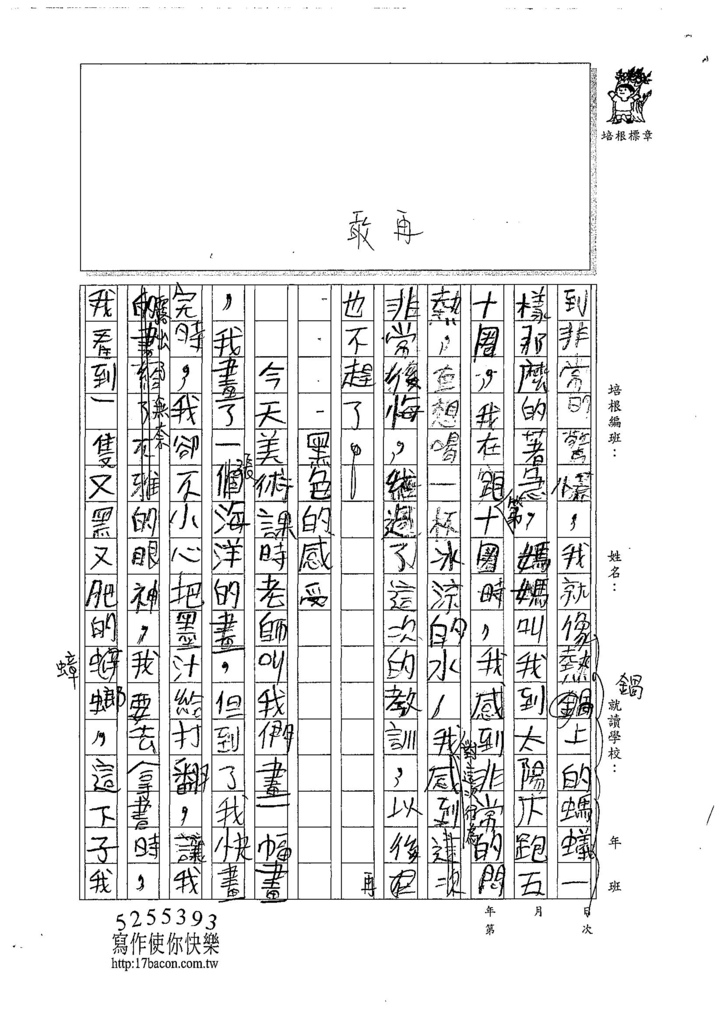 培根標章
敢再
培根編班：
姓名：
就讀學校：
年 班
年 月 日
第 次
到非常的驚慌，我就像熱鍋上的螞蟻一
鍋
樣那麼的著急，媽媽叫我到太陽下跑五
十圈，我在跑第十圈時，我感到非常的悶
熱，直想喝一杯冰涼的水，我對這次行為感到
非常後悔，經過了這次的教訓，以後
再也不趕了！
黑色的感受
今天美術課時老師叫我們畫一幅畫
，我畫了一張海洋的畫，但到了我快畫
完時，我卻不小心把墨汁給打翻，讓我
露出了無奈的眼神，我要去拿書時，
我看到一隻又黑又肥的蟑螂，這下子我
蟑
5255393
寫作使你快樂
http:/17bacon.com.tw